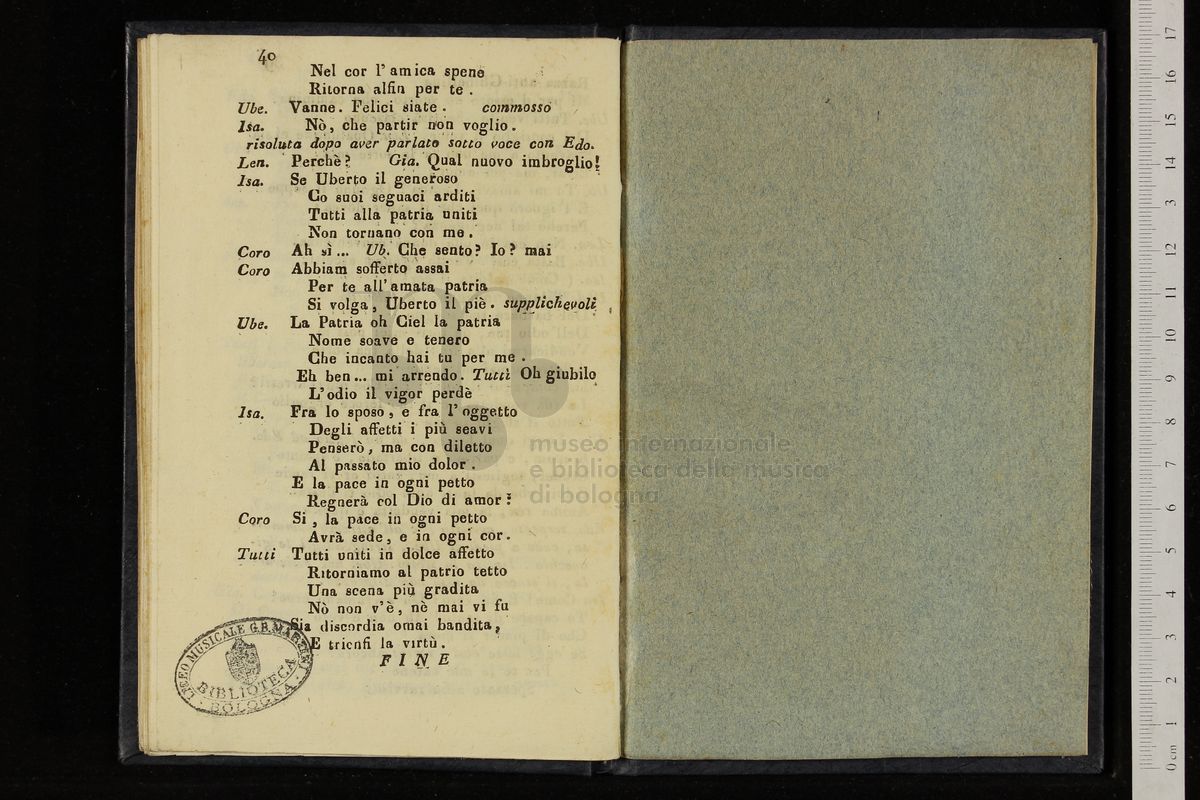 40
Nel cor l'amica spene
Ritorna alfin per te .
Ube. Vanne . Felici siate . commosso
Isa. Nò, che partir non voglio .
risoluta dopo aver parlato sotto voce con Edo.
Len. Perchè ? Gia. Qual nuovo imbroglio!
Isa. Se Uberto il generoso
Co suoi seguaci arditi
Tutti alla patria uniti
Non tornano con me .
Coro Ah sì ... Ub. Che sento? Io ? mai
Coro Abbiam sofferto assai
Per te all'amata patria
Si volga, Uberto il piè . supplichevoli
Ube. La Patria oh Ciel la patria
Nome soave e tenero
Che incanto hai tu per me .
Eh ben ... mi arrendo. Tutti Oh giubilo
L'odio il vigor perdè
Isa. Fra lo sposo, e fra l'oggetto
Degli affetti i più seavi
Penserò, ma con diletto
Al passato mio dolor .
E la pace in ogni petto
Regnerà col Dio di amor :
Coro Si , la pace in ogni petto
Avrà sede, e in ogni cor.
Tutti Tutti uniti in dolce affetto
Ritorniamo al patrio tetto
Una scena più gradita
Nò non v'è, nè mai vi fu
Sia discordia omai bandita,
E trionfi la virtù .
FINE
LICEO MUSICALE G.B. MARTINI
BIBLIOTECA
BOLOGNA
museo internazionale
e biblioteca della musica
di bologna
0 cm 1 2 3 4 5 6 7 8 9 10 11 12 13 14 15 16 17